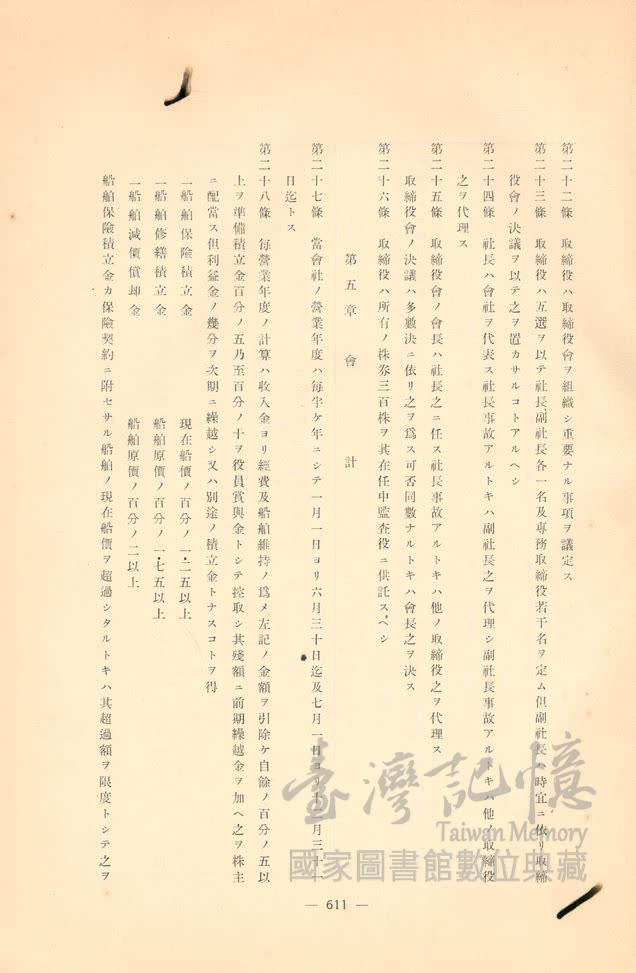 第二十二條　取締役ハ取締役會ヲ組織シ重要ナル事項ヲ議定ス
第二十三條　取締役ハ互選ヲ以テ社長副社長各一名及專務取締役若干名ヲ定ム但副社長ハ時宜ニ依リ取締
役會ノ決議ヲ以テ之ヲ置カサルコトアルヘシ
第二十四條　社長ハ會社ヲ代表ス社長事故アルトキハ副社長之ヲ代理シ副社長事故アルトキハ他ノ取締役
之ヲ代理ス
第二十五條　取締役會ノ會長ハ社長之ニ任ス社長事故アルトキハ他ノ取締役之ヲ代理ス
取締役會ノ決議ハ多數決ニ依リ之ヲ爲ス可否同數ナルトキハ會長之ヲ決ス
第二十六條　取締役ハ所有ノ株券三百株ヲ其在任中監査役ニ供託スヘシ
第五章　會計
第二十七條　當會社ノ營業年度ハ每半ケ年ニシテ一月一日ヨリ六月三十日迄及七月一日ヨリ十二月三十一
日迄トス
第二十八條　每營業年度ノ計算ハ收入金ヨリ經費及船舶維持ノ爲メ左記ノ金額ヲ引除ケ自餘ノ百分ノ五以
上ヲ準備積立金百分ノ五乃至百分ノ十ヲ役員賞與金トシテ控取シ其殘額ニ前期繰越金ヲ加ヘ之ヲ株主
ニ配當ス但利益金ノ幾分ヲ次期ニ繰越シ又ハ別途ノ積立金トナスコトヲ得
一船舶保險積立金　現在船價ノ百分ノ一・二五以上
一船舶修繕積立金　船舶原價ノ百分ノ一・七五以上
一船舶減價償却金　船舶原價ノ百分ノ二以上
船舶保險積立金カ保險契約ニ附セサル船舶ノ現在船價ヲ超過シタルトキハ其超過額ヲ限度トシテ之ヲ
— 611 —
臺灣記憶
Taiwan Memory
國家圖書館數位典藏